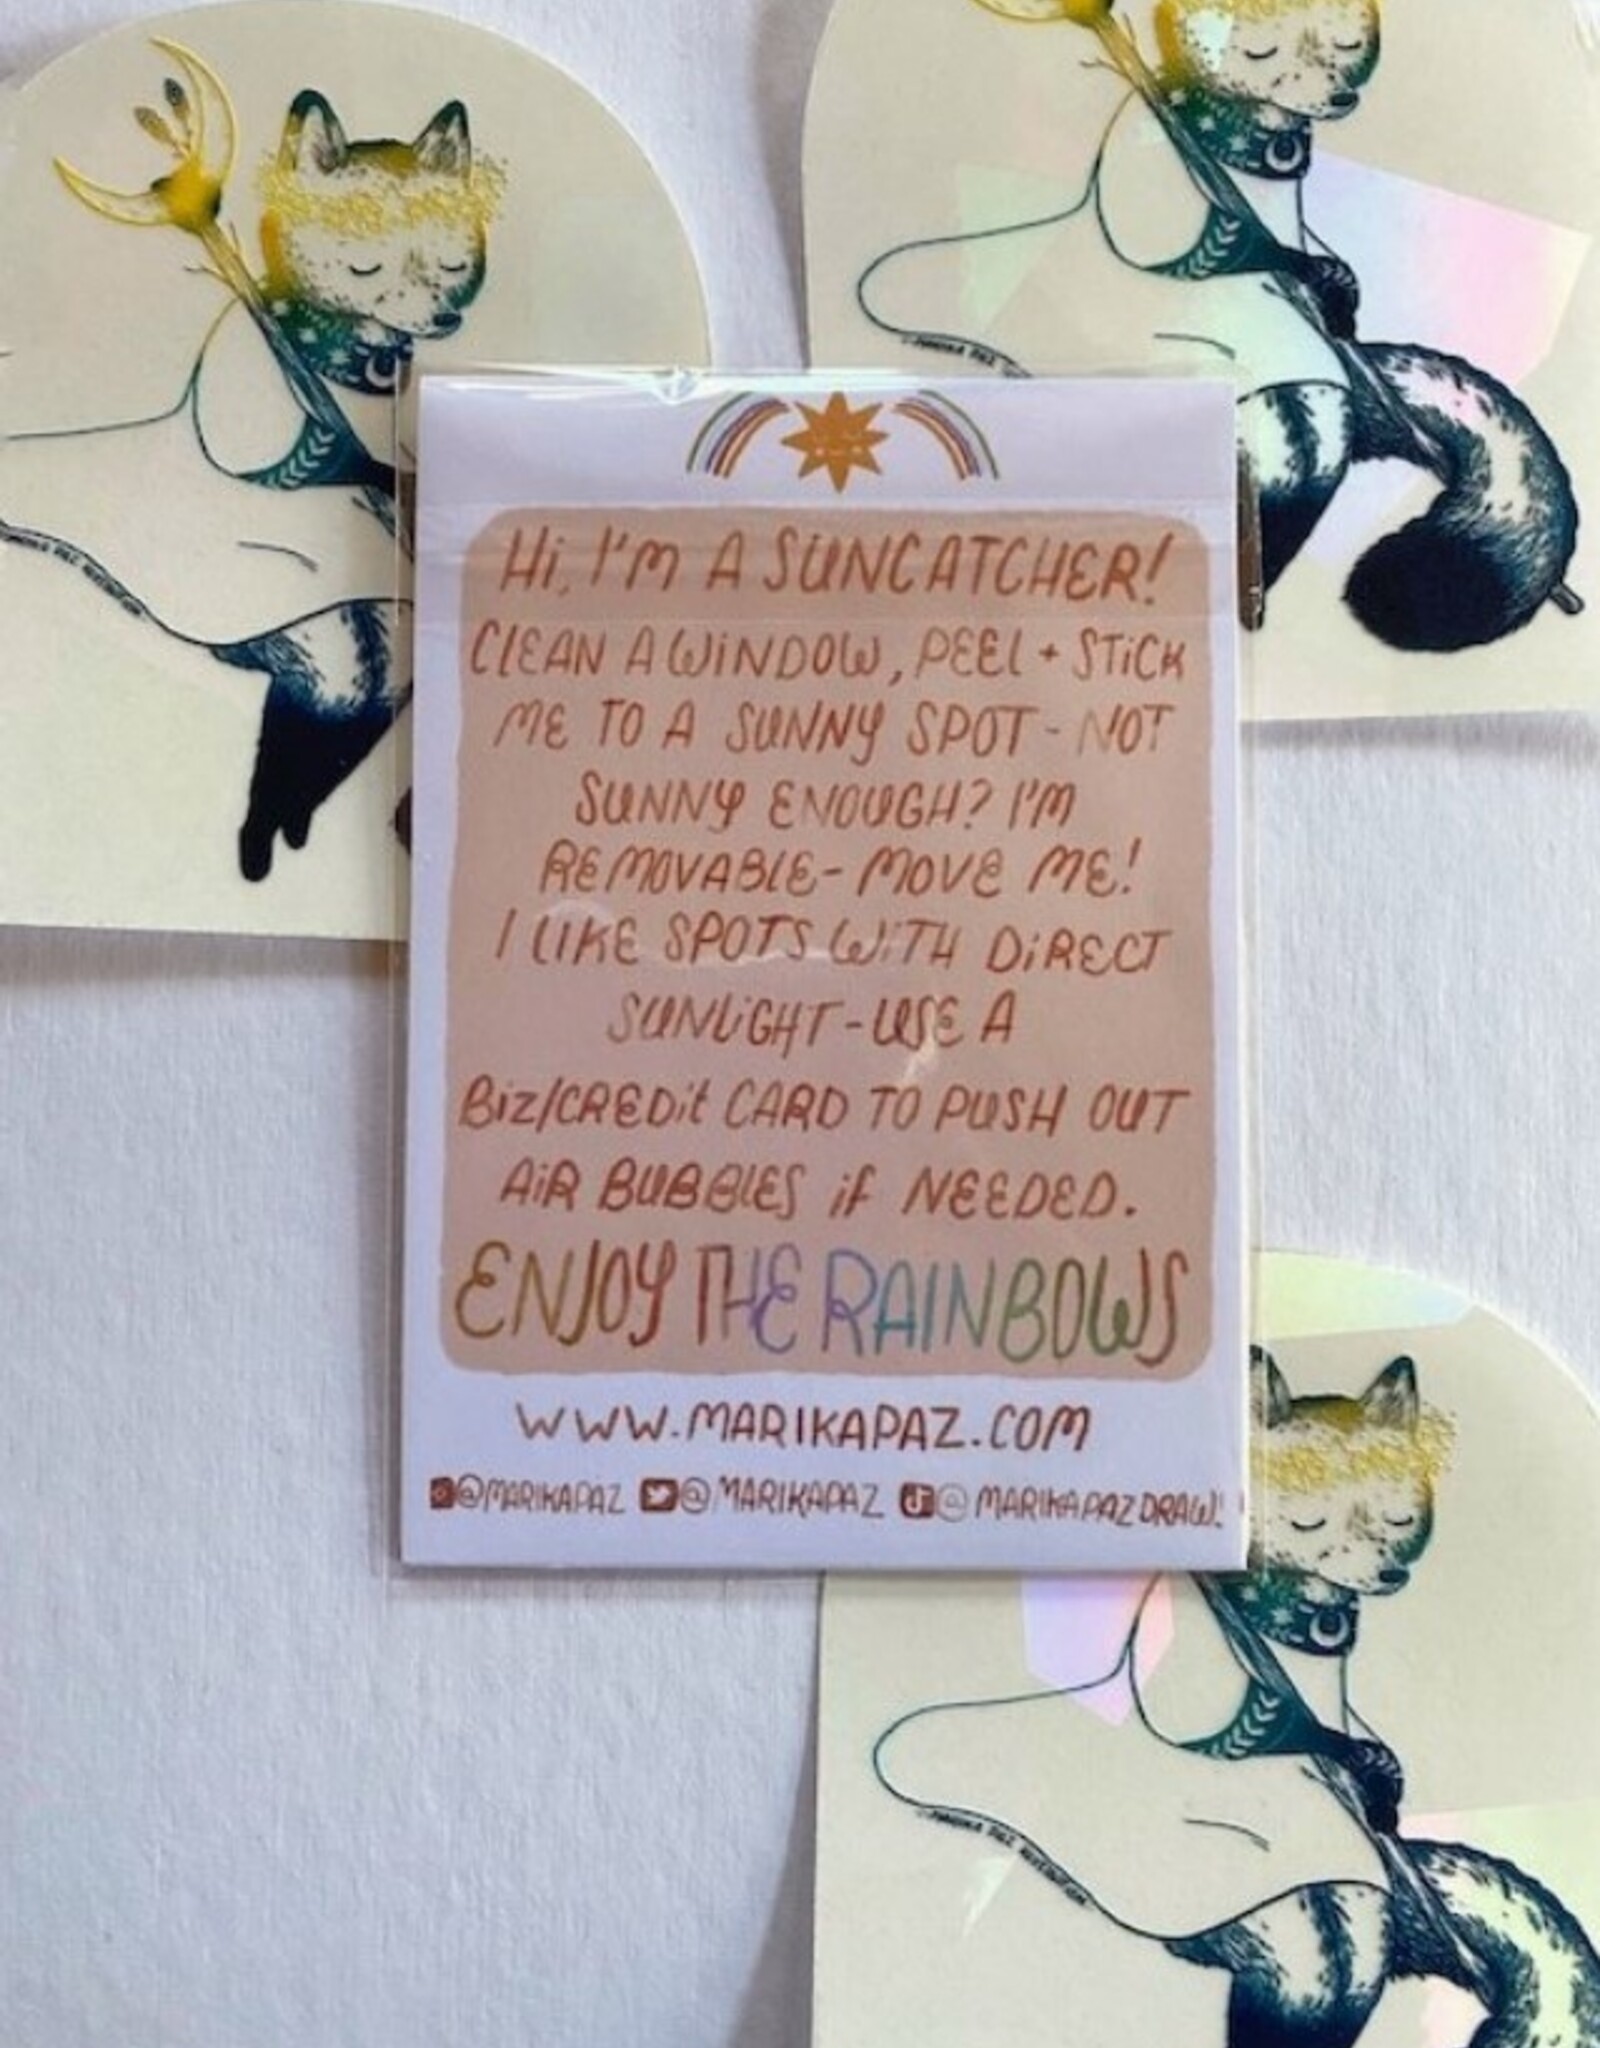 Hi, I'M A SUNCATCHER!
CLEAN A WiNDOW, PEEL + STiCK
ME TO A SUNNY SPOT - NOT
SUNNY ENOUGH? I'M
REMOVABLE - MOVE ME!
I LIKE SPOTS WiTH DiRECT
SUNLiGHT - USE A
Biz/CREDit CARD TO PUSH OUT
AiR BUBBLES if NEEDED.
ENJOY THE RAINBOWS
WWW.MARIKAPAZ.COM
@MARIKAPAZ @MARIKAPAZ @MARIKAPAZDRAW!
©MARIKA PAZ
MARIKA PAZ ILLUSTRATION
©MARIKA PAZ ILLUSTRATION